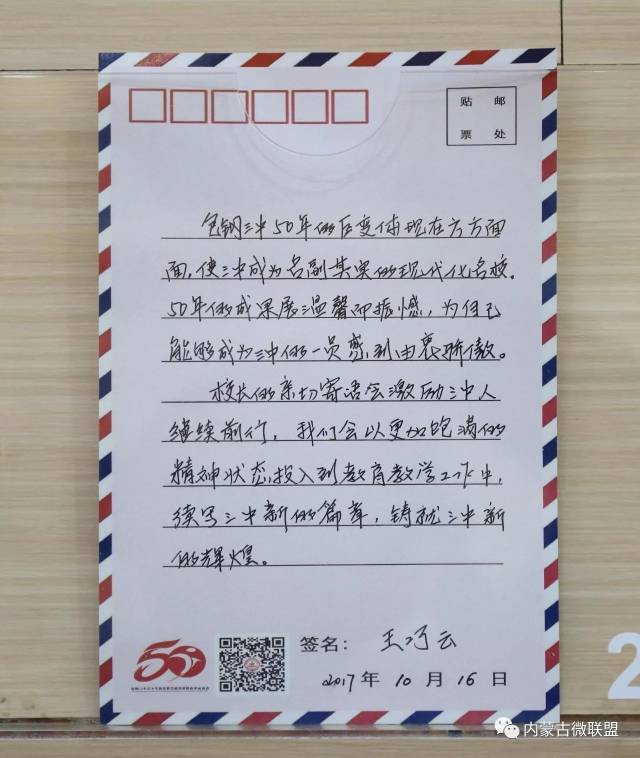 贴 邮
票 处
包钢三中50年的巨变体现在方方面
面,使三中成为名副其实的现代化名校.
50年的成果展温馨而振憾,为自己
能够成为三中的一员感到由衷骄傲。
校长的亲切寄语会激励三中人
继续前行,我们会以更加饱满的
精神状态投入到教育教学工作中,
续写三中新的篇章,铸就三中新
的辉煌。
50
签名: 王巧云
2017 年 10 月 16 日
2
内蒙古微联盟